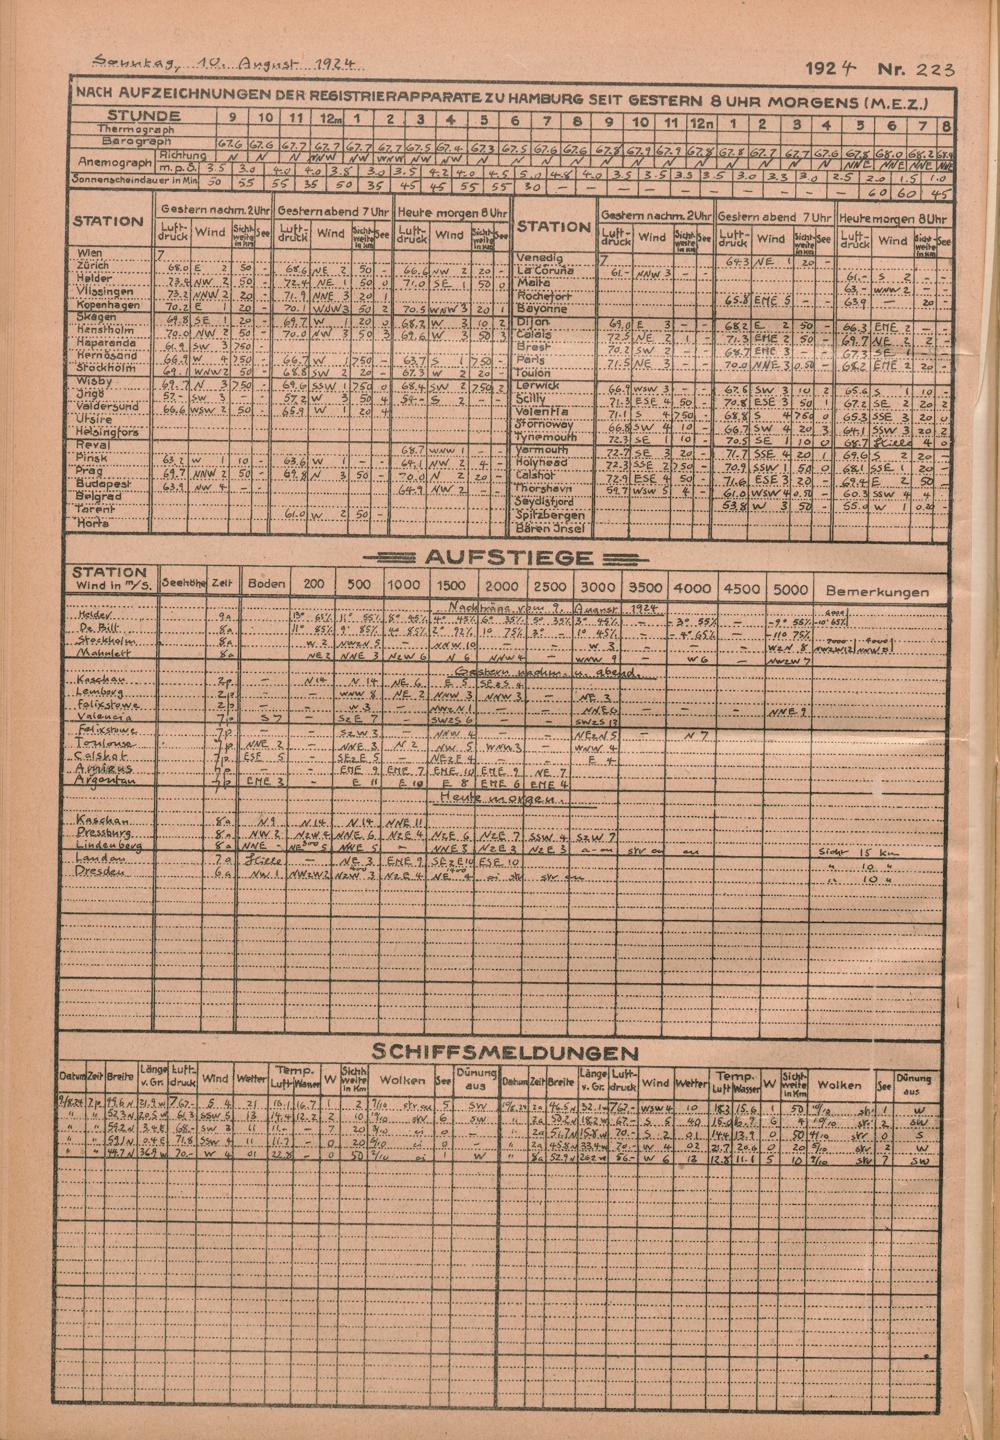 Sonntag, 10. August 1924
1924 Nr. 223
NACH AUFZEICHNUNGEN DER REGISTRIERAPPARATE ZU HAMBURG SEIT GESTERN 8 UHR MORGENS (M.E.Z.)
STUNDE 9 10 11 12m 1 2 3 4 5 6 7 8 9 10 11 12n 1 2 3 4 5 6 7 8
Thermograph
Barograph 67.6 67.6 67.7 67.7 67.7 67.7 67.5 67.4 67.3 67.5 67.6 67.6 67.8 67.9 67.9 67.8 67.8 67.7 67.7 67.6 67.8 68.0 68.2 68.4
Anemograph Richtung N N N WNW N WNW NW NW N N N N N N N N N N N N NNE NNE NNE NNE
m.p.S. 3.5 3.0 4.0 4.0 3.8 3.0 3.5 4.2 4.0 4.5 5.0 4.8 4.0 3.5 3.5 3.5 3.5 3.0 3.3 3.0 2.5 2.0 1.5 1.0
Sonnenscheindauer in Min. 50 55 55 35 50 35 45 45 55 55 30 — — — — — — — — — — 60 60 45
STATION Gestern nachm. 2 Uhr Gestern abend 7 Uhr Heute morgen 8 Uhr STATION Gestern nachm. 2 Uhr Gestern abend 7 Uhr Heute morgen 8 Uhr
Luftdruck Wind Sichtweite in km See Luftdruck Wind Sichtweite in km See Luftdruck Wind Sichtweite in km See Luftdruck Wind Sichtweite in km See Luftdruck Wind Sichtweite in km See Luftdruck Wind Sichtweite in km See
Wien 7 Venedig 7 64.3 NE 1 20 -
Zürich 68.0 E 2 50 - 68.6 NE 2 50 - 66.6 NW 2 20 - La Coruña 61.- NNW 3 - - 61.- S 2 - -
Helder 73.4 NW 2 50 - 72.4 NE 1 50 0 71.0 SE 1 50 0 Malta 63.- WNW 2 - -
Vlissingen 73.2 NNW 2 20 - 71.9 NNE 3 20 1 Rochefort 65.8 ENE 5 - - 63.9 - 20 -
Kopenhagen 70.2 E 20 - 70.1 WNW 3 50 2 70.5 WNW 3 20 1 Bayonne
Skagen 69.8 SE 1 20 - 69.7 W 1 20 0 68.2 W 3 10 2 Dijon 69.0 E 3 - - 68.2 E 2 50 - 66.3 ENE 2 - -
Hanstholm 70.0 NW 2 50 - 70.0 NW 3 50 3 69.6 W 3 50 3 Calais 72.5 NE 2 1 - 71.3 ENE 2 50 - 69.7 NE 2 2 -
Haparanda 61.9 SW 3 750 - Brest 70.2 SW 2 - - 68.7 ENE 3 - - 67.3 SE 1 - -
Hernösand 66.9 W 4 750 - 66.7 W 1 750 - 63.7 S 1 750 - Paris 71.5 NE 3 - - 70.0 NNE 3 0.50 - 68.2 ENE 2 20 -
Stockholm 69.1 WNW 2 50 - 68.8 SW 2 20 - 67.3 W 2 20 - Toulon
Wisby 69.7 N 3 750 - 69.6 SSW 1 750 0 68.4 SW 2 750 2 Lerwick 66.9 WSW 3 - - 67.6 SW 3 10 2 65.6 S 1 10 -
Ingö 57.- SW 3 - - 57.2 W 3 50 4 54.- S 2 - - Scilly 71.3 ESE 4 50 - 70.8 ESE 3 50 1 67.2 SE 2 20 2
Valdersund 66.6 WSW 2 50 - 65.9 W 1 20 4 Valentia 71.1 S 4 750 - 68.8 S 4 750 0 65.3 SSE 3 20 0
Utsire Stornoway 66.8 SW 4 10 - 66.7 SW 4 20 3 64.1 SSW 3 20 2
Helsingfors Tynemouth 72.3 SE 1 10 - 70.5 SE 1 10 0 68.7 Stille 4 0
Reval 68.7 WNW 1 - - Yarmouth 72.7 SE 3 20 - 71.7 SSE 4 20 1 69.6 S 2 20 -
Pinsk 63.2 W 1 10 - 63.6 W 1 - - 64.1 NW 2 4 - Holyhead 72.3 SSE 2 750 - 70.9 SSW 1 50 0 68.1 SSE 1 20 -
Prag 69.7 NNW 2 50 - 69.8 N 3 50 - 70.0 N 2 20 - Calshot 72.9 ESE 4 50 - 71.6 ESE 3 20 - 69.4 E 2 50 -
Budapest 63.9 NW 4 - - 64.9 NW 2 - - Thorshavn 59.7 WSW 5 4 - 61.0 WSW 4 0.50 - 60.3 SSW 4 4 -
Belgrad Seydisfjord 53.8 W 3 50 - 55.0 W 1 0.20 -
Tarent 61.0 W 2 50 - Spitzbergen
Horta Bären Insel
AUFSTIEGE
STATION Wind in m/S. Seehöhe Zeit Boden 200 500 1000 1500 2000 2500 3000 3500 4000 4500 5000 Bemerkungen
Nachträge vom 9. August 1924
Helder 9a 13° 65% 11° 55% 8° 45% 4° 45% 6° 35% 5° 35% 3° 46% -3° 55% -9° 56% 6000 -10° 65%
De Bilt 8a 11° 85% 9° 85% 4° 85% 2° 92% 1° 75% 3° - 1° 45% -4° 65% -11° 75%
Stockholm 8a W 2 NWzW 5 - NNW 10 - W 3 - WzN 8
Mahnlett 8a NE 2 NNE 3 NzW 6 N 6 NNW 4 WNW 9 - W 6 - NWzW 7
Gestern nachm. u. abend.
Kaschau 2p - N 14 N 14 NE 6 E 5 SEzS 4
Lemberg 2p - - WNW 8 NE 2 NNW 3 NNW 3 - NE 3
Felixstowe 2p - - W 3 - NWzN 1 - - NNE 6 - - - NNE 9
Valencia 7p S 7 - SzE 7 - SWzS 6 - - SWzS 13
Felixstowe 7p - - SzW 3 - NNW 4 - - NEzN 5 - N 7
Toulouse 7p NNE 2 - NNE 3 N 2 NW 5 WNW 3 - WNW 4
Calshot 7p ESE 5 - SEzE 5 - NEzE 4 - - E 4
Amiens 7p ENE 9 ENE 7 ENE 10 ENE 9 NE 7
Argentan 7p ENE 3 E 11 E 10 E 8 ENE 6 ENE 4
Heute morgen.
Kaschau 8a N 9 N 14 N 14 NNE 11
Pressburg 8a NW 2 NzW 4 NNE 6 NzE 4 NzE 6 NzE 7 SSW 4 SzW 7
Lindenberg 8a NNE - NE 300 5 NNE 5 - NNE 3 NzE 3 NzE 3 Sicht 15 km
London 7a Stille - NE 3 ENE 9 SEzE 10 ESE 10 " 10 "
Dresden 6a NW 1 NWzW 2 NzW 3 NzE 4 NE 4 " 10 "
SCHIFFSMELDUNGEN
Datum Zeit Breite Länge v. Gr. Luftdruck Wind Wetter Temp. Luft Wasser W Sichtweite in Km Wolken See Dünung aus Datum Zeit Breite Länge v. Gr. Luftdruck Wind Wetter Temp. Luft Wasser W Sichtweite in Km Wolken See Dünung aus
9/8.24 2p 49.6 N 21.9 W 767.- S 4 21 18.1 16.7 1 2 9/10 str cu 5 SW 10/8.24 2a 46.5 N 32.1 W 767.- WSW 4 10 18.3 15.6 1 50 10/10 str 1 W
" " 52.3 N 20.5 W 61.3 SSW 5 13 14.4 12.2 2 10 10/10 str 6 SW " 2a 50.2 N 18.2 W 67.- S 5 40 15.0 16.7 6 4 10/10 str 2 SW
" " 59.2 N 3.4 E 68.- SW 3 11 11.- - 7 20 0 - " 2a 51.7 N 15.8 W 70.- S 2 01 14.4 13.9 0 50 4/10 str 0 S
" " 59.1 N 0.4 E 71.8 SSW 4 11 11.7 - 0 20 - - " 2a 45.8 N 33.4 W 70.- W 4 02 21.7 20.6 0 20 5/10 str 2 W
" " 44.7 N 36.9 W 70.- W 4 01 22.8 - 0 50 2/10 ci 1 W " 8a 52.9 N 20.2 W 56.- W 6 12 12.8 11.1 5 10 9/10 str 7 SW